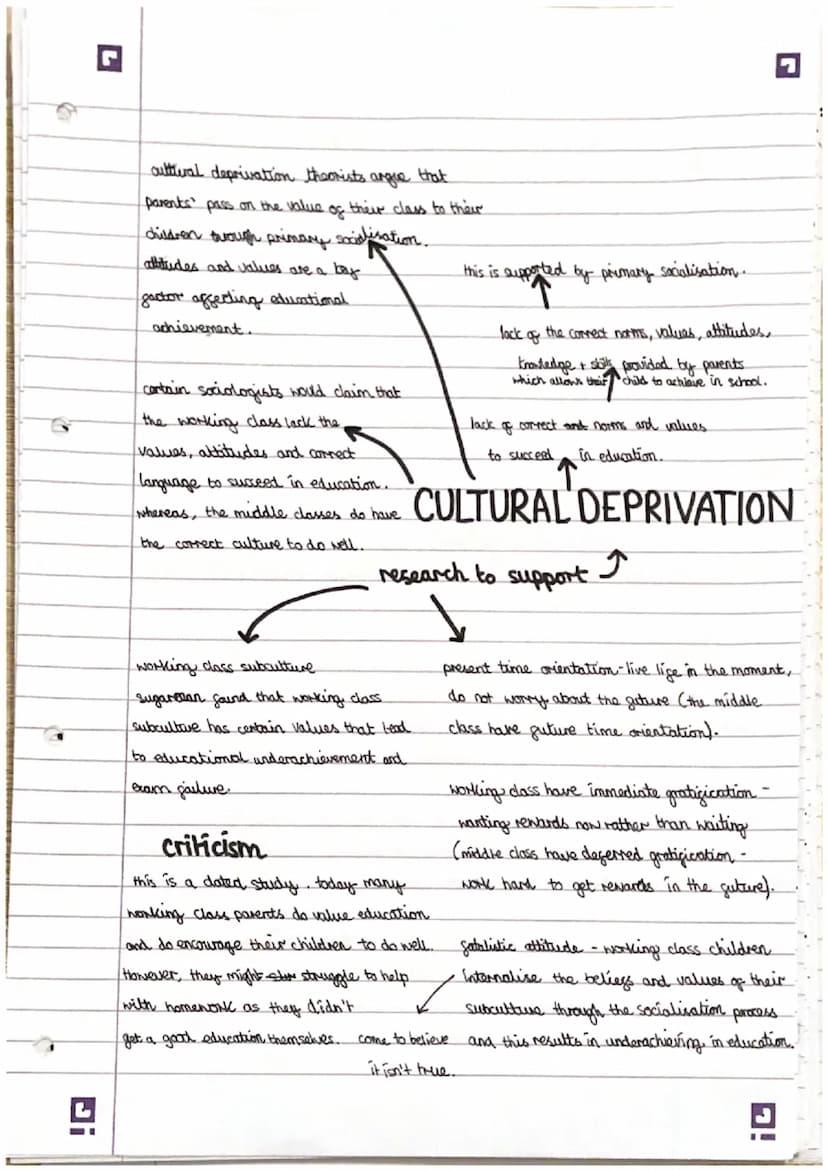 cultural deprivation theorists argue that
parents' pass on the value of their class to their
children through primary socialisation.
attitudes and values are a key
factor affecting educational
achievement.
this is supported by primary socialisation.
lack of the correct norms, values, attitudes,
knowledge + skills provided by parents
which allows their child to achieve in school.
lack of correct and norms and values
to succeed in education.
certain sociologists would claim that
the working class lack the
values, attitudes and correct
language to succeed in education.
whereas, the middle classes do have
the correct culture to do well.
CULTURAL DEPRIVATION
research to support
working class subculture
sugarman found that working class
subculture has certain values that lead
to educational underachievement and
exam failure.
criticism
this is a dated study. today many
working class parents do value education
and do encourage their children to do well.
However, they might struggle to help
with homework as they didn't
get a good education themselves.
present time orientation - live life in the moment,
do not worry about the future (the middle
class have future time orientation).
working class have immediate gratification -
wanting rewards now rather than waiting
(middle class have deferred gratification -
work hard to get rewards in the future).
fatalistic attitude - working class children
internalise the beliefs and values of their
subculture through the socialisation process
and this results in underachieving in education.
come to believe
it isn't true.